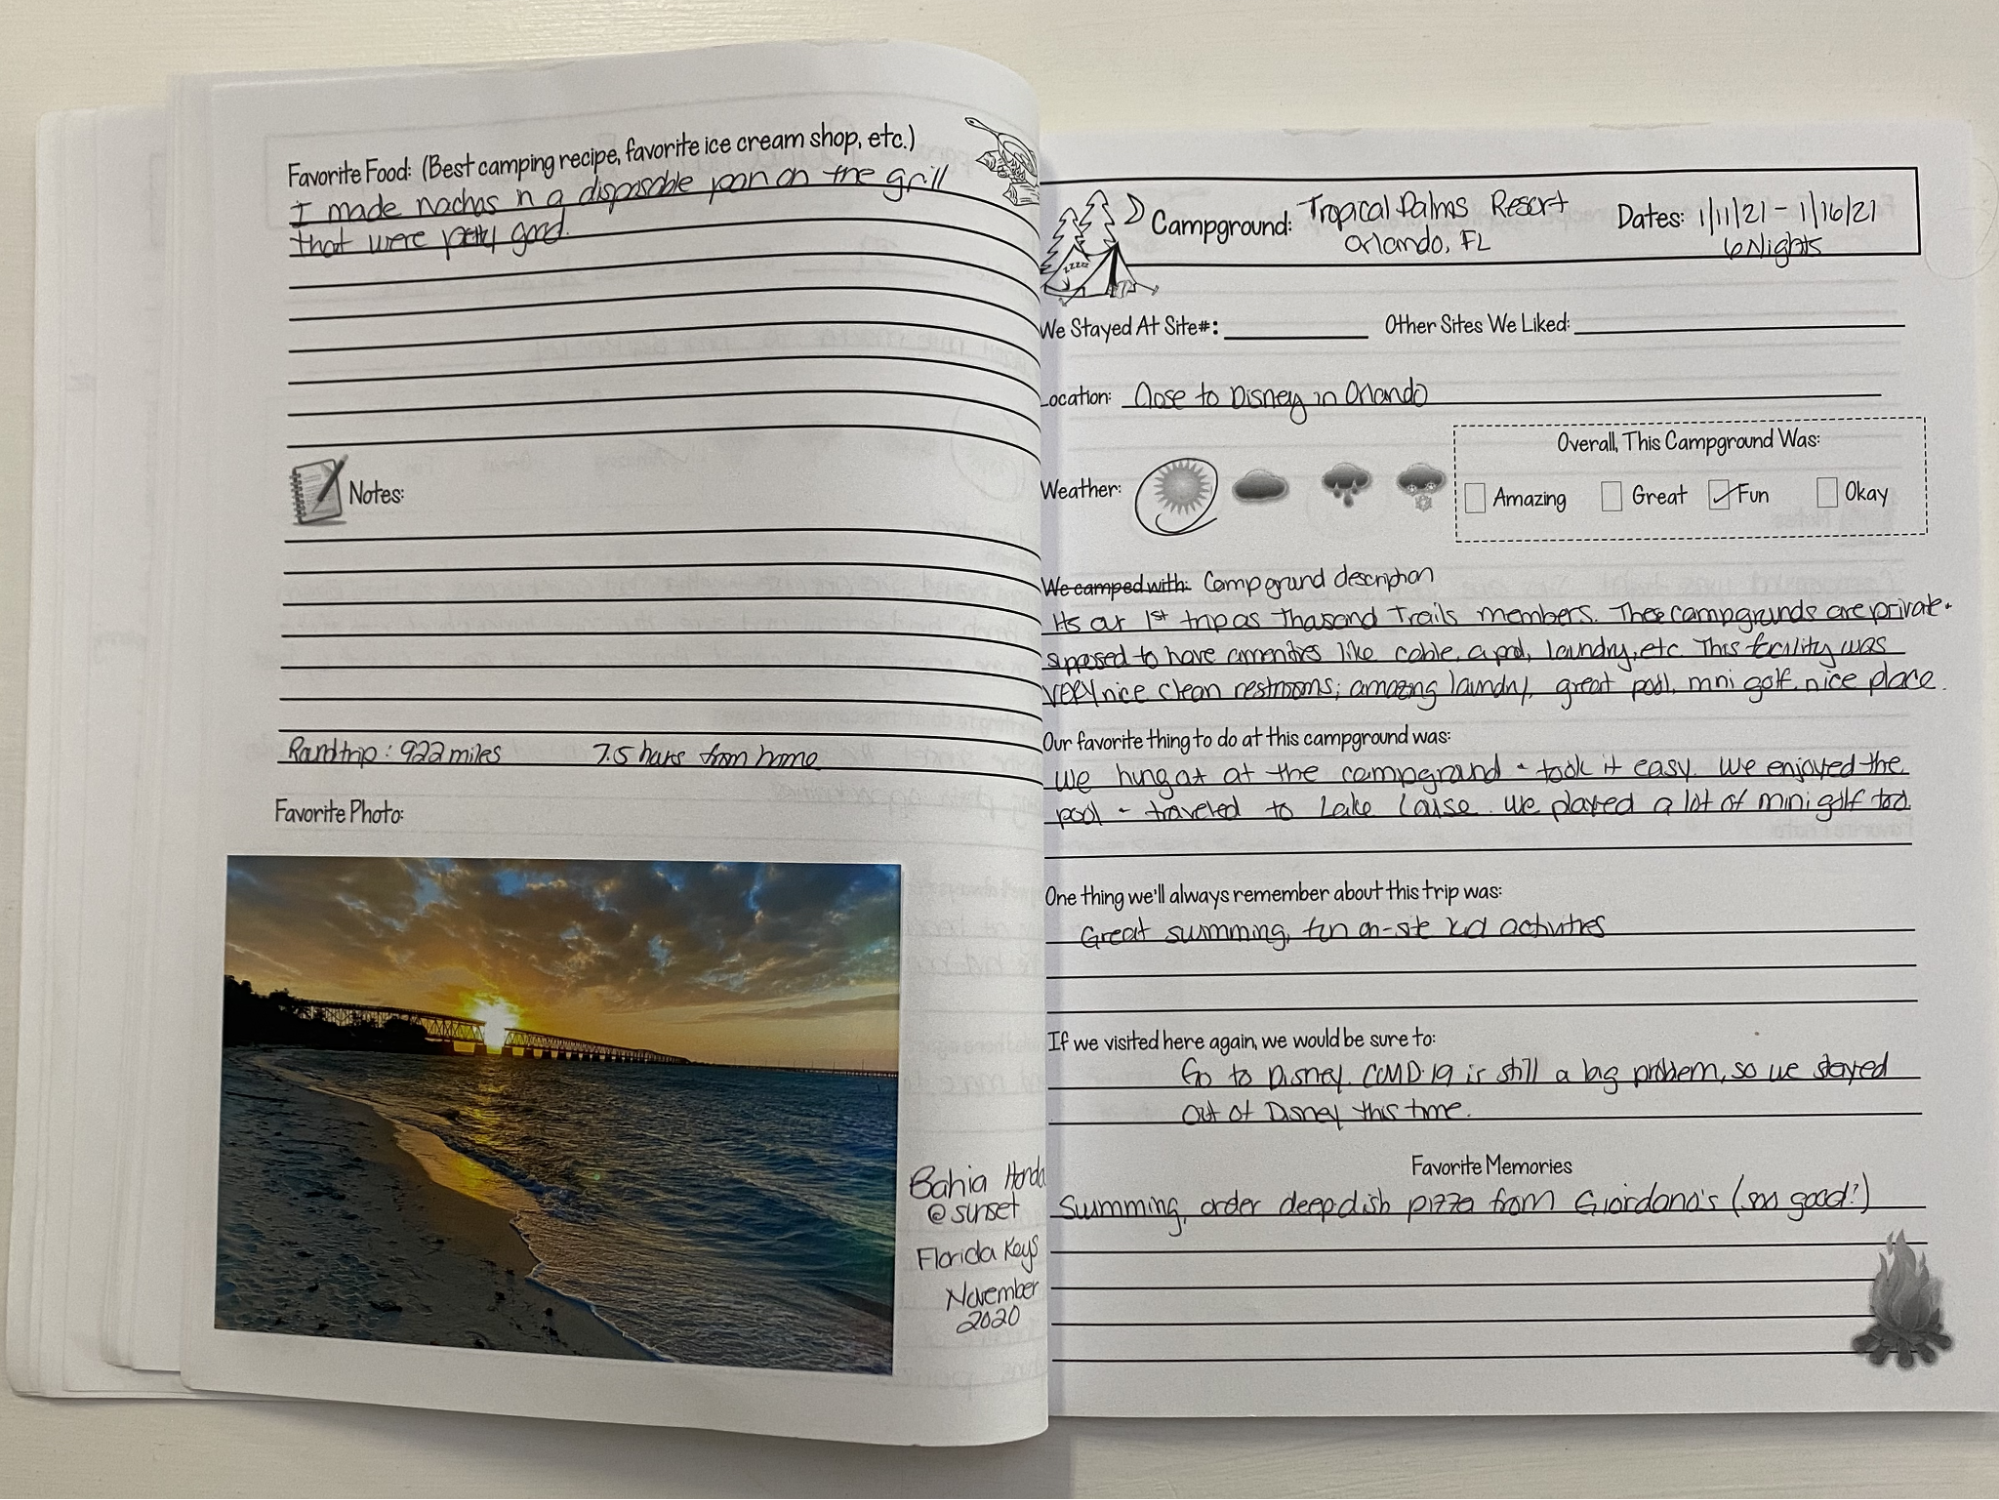 Favorite Food: (Best camping recipe, favorite ice cream shop, etc.)
I made nachos in a disposable pan on the grill
that were pretty good.
Notes:
Roundtrip: 922 miles 7.5 hours from home
Favorite Photo:
Bahia Honda
@ sunset
Florida Keys
November
2020
Campground: Tropical Palms Resort
Orlando, FL
Dates: 1/11/21 - 1/16/21
6 Nights
We Stayed At Site#: Other Sites We Liked:
Location: Close to Disney in Orlando
Overall, This Campground Was:
Weather:
Amazing Great Fun Okay
We camped with: Campground description
Its our 1st trip as Thousand Trails members. These campgrounds are private -
supposed to have amenities like cable, a pool, laundry, etc. This facility was
VERY nice. Clean restrooms; amazing laundry, great pool, mini golf. nice place.
Our favorite thing to do at this campground was:
We hung out at the campground - took it easy. We enjoyed the
pool - traveled to Lake Louise. We played a lot of mini golf too.
One thing we'll always remember about this trip was:
Great swimming, fun on-site kid activities
If we visited here again, we would be sure to:
Go to Disney. COVID-19 is still a big problem, so we stayed
out of Disney this time.
Favorite Memories
Swimming, order deep dish pizza from Giordano's (soo good!)
zzzzz